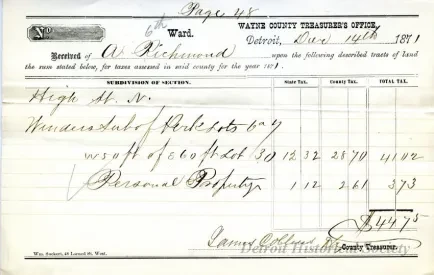 Page 48
No.
6th Ward.
WAYNE COUNTY TREASURER'S OFFICE,
Detroit, Dec 14th 1871
Received of A Richmond upon the following described tracts of land
the sum stated below, for taxes assessed in said county for the year 1871.
SUBDIVISION OF SECTION. STATE TAX. COUNTY TAX. TOTAL TAX.
High St. N.
Winders Sub of Park Lots 6 & 7
W 50 ft of E 60 ft Lot 30 12 32 28 70 41 02
Personal Property 1 12 2 61 3 73
$44 75
James County Treasurer.
48 Larned St. West.
Detroit Historical Society